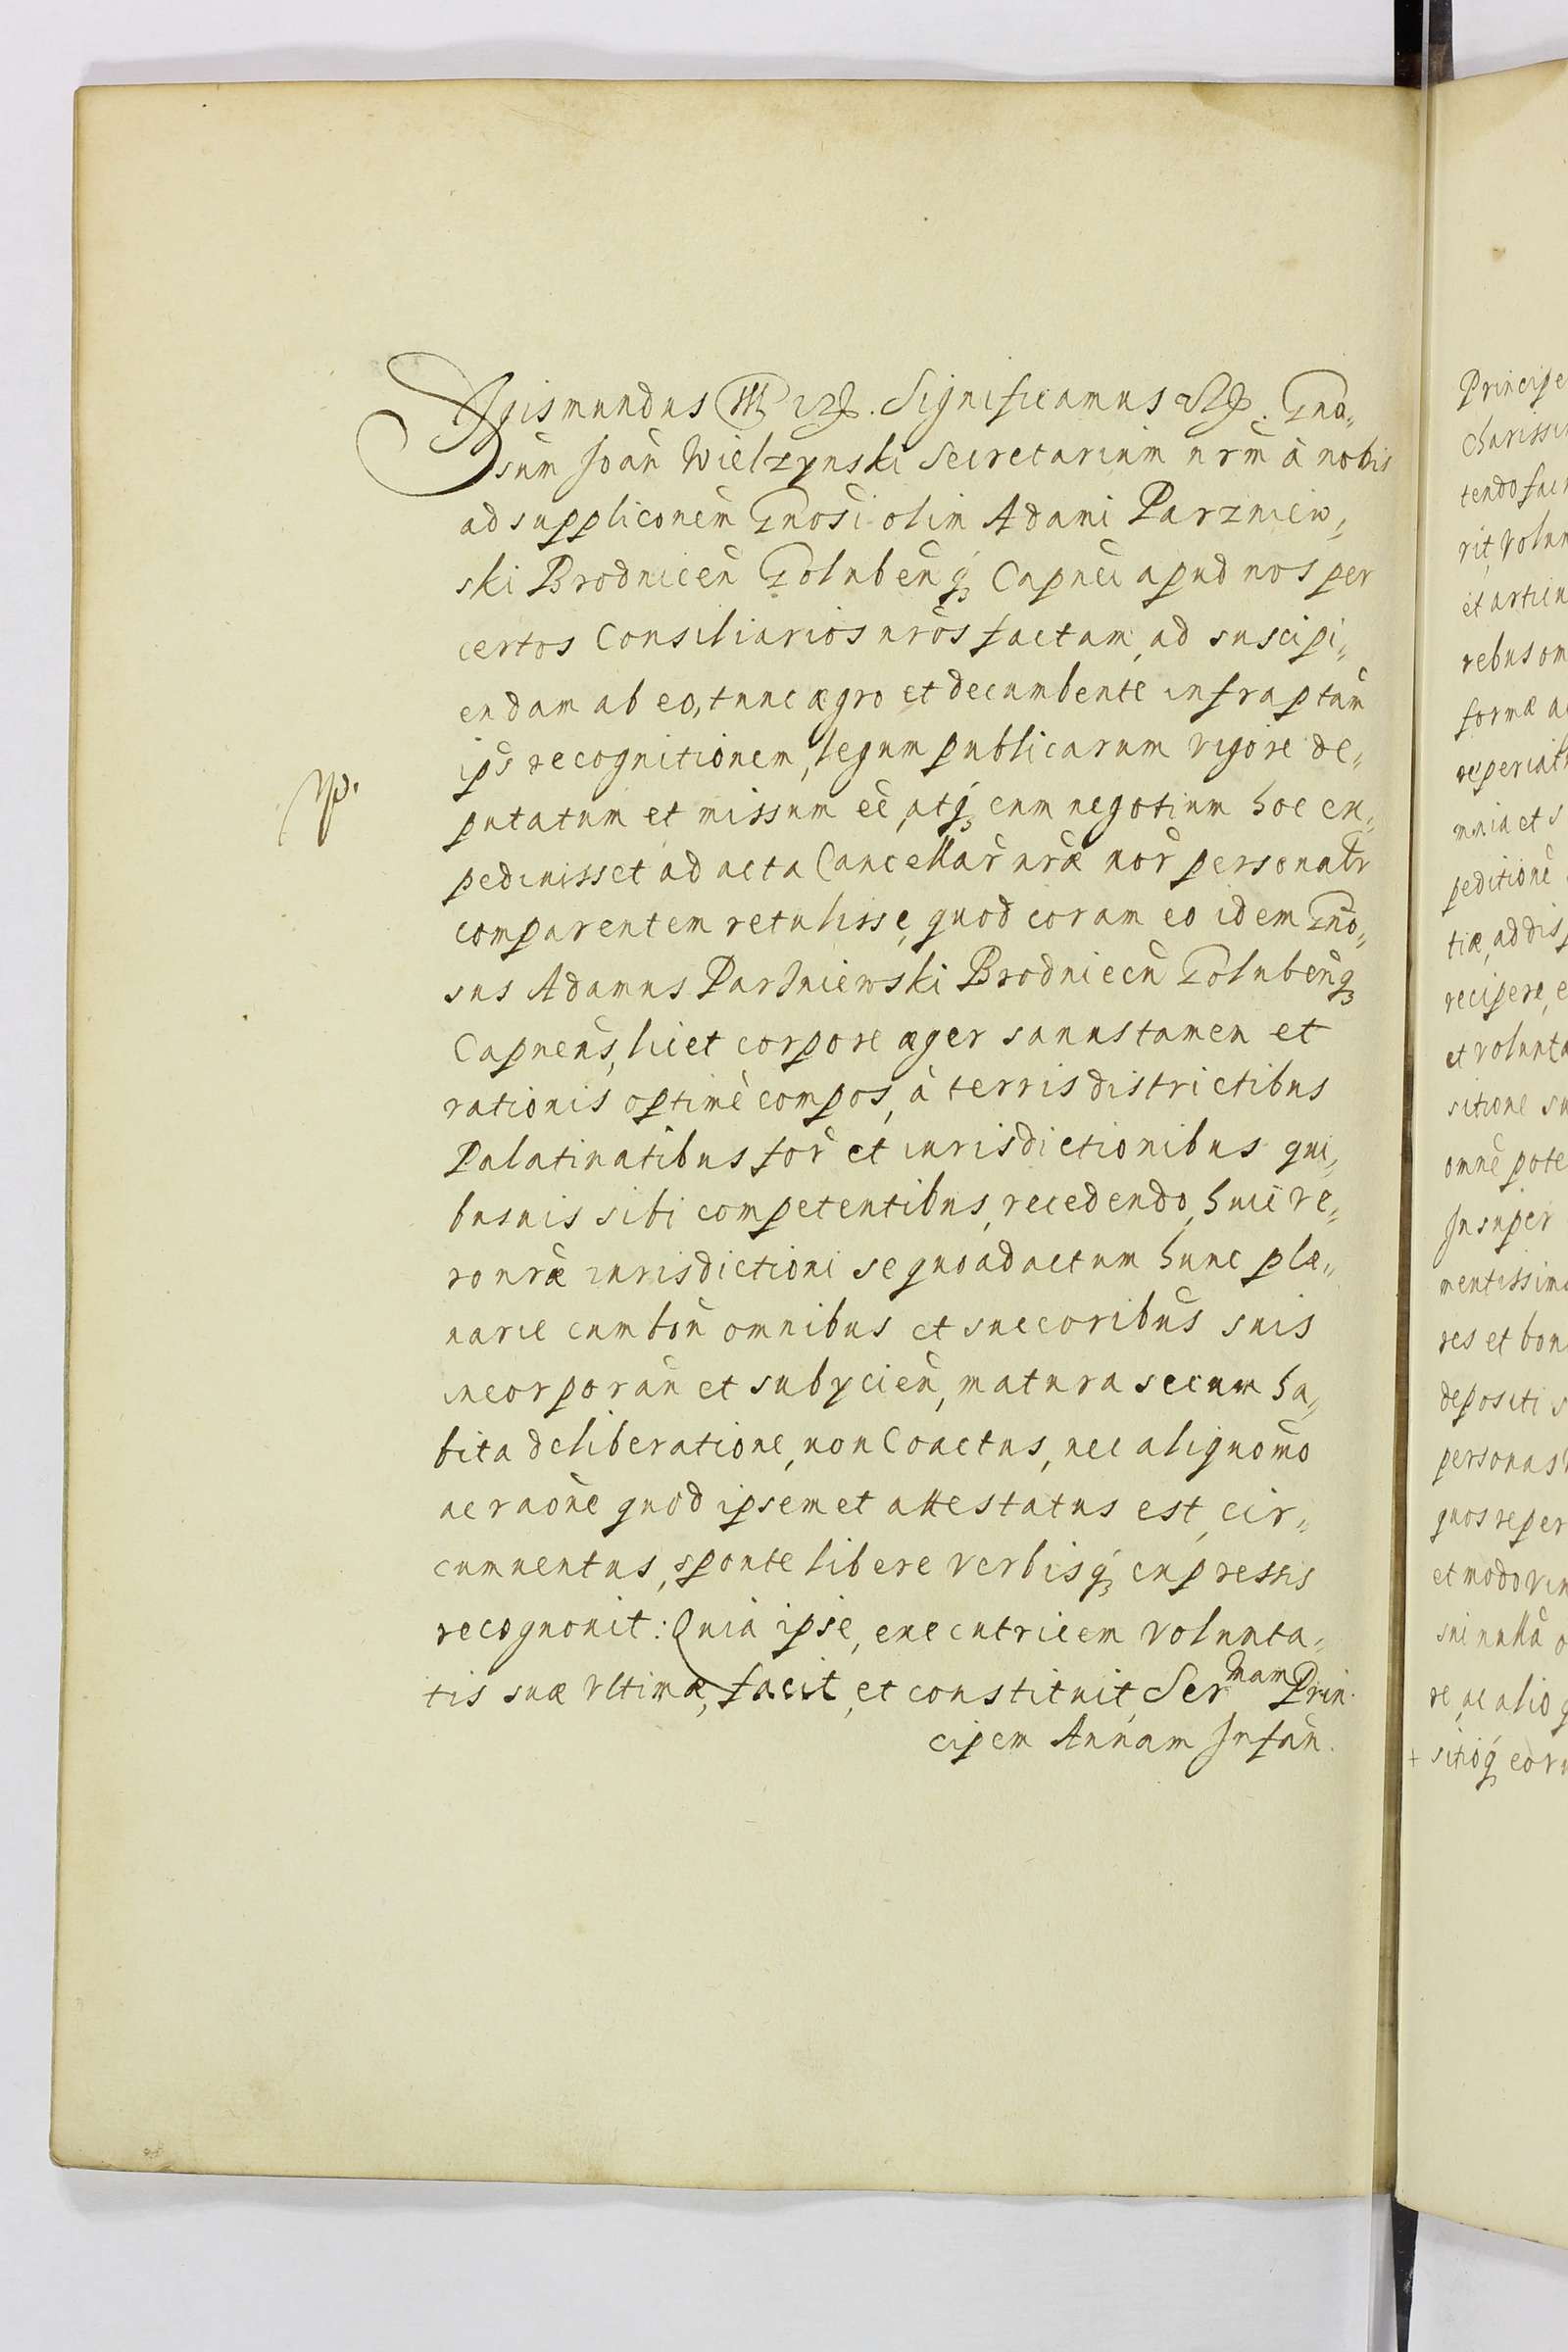 Sigismundus III etc. Significamus etc. Gno„
sum Joan̄ Wielzynski Secretarium nrm̄ à nobis
ad suppliconem̄ Gnosi olim Adami Parzniew„
ski Brodnicen̄ Golubenq́ꝫ Capnei apud nos per
certos Consiliarios nros̄ factam, ad suscipi„
endam ab eo, tunc ægro et decumbente infraptam̄
ips̄ recognitionem, legum publicarum vigore de„
putatum et missum eē, atq́ꝫ eum negotium hoc ex„
pediuisset ad acta Cancellar̄ nrǣ nor̄ personalr̄
comparentem retulisse, quod coram eo idem Gno„
sus Adamus Parzniewski Brodnicen̄ Golubenqꝫ
Capneus̄, licet corpore æger sanus tamen et
rationis optimè compos, à terris districtibus
Palatinatibus for̄ et iurisdictionibus qui„
busuis sibi competentibus, recedendo, huic ve„
ro nrǣ iurisdictioni se quo ad actum hunc plæ„
narie cum bon̄ omnibus et succoribus̄ suis
incorporan̄ et subycien̄, matura secum ha„
bita deliberatione, non Coactus, nec aliquo mō
ac raōne quod ipsemet attestatus est, cir„
cumuentus, sponte libere verbisq́ꝫ expressis
recognouit: Quia ipse, executricem volunta„
tis suæ vltimæ, facit, et constituit, Ser mam Prin„
cipem Annam Infan̄.
Principe
charissi
tendo fac
rit, volun
et artic
rebus om
formæ a
reperiat
mnia et s
peditionē
tiæ, ad dis
recipere, e
et volunta
sitione su
omnē pote
Insuper
mentissim
res et bon
depositi s
personas
quos reper
et modo vi
sui nullā o
re, ac alio q
+ sitioq́ꝫ eor